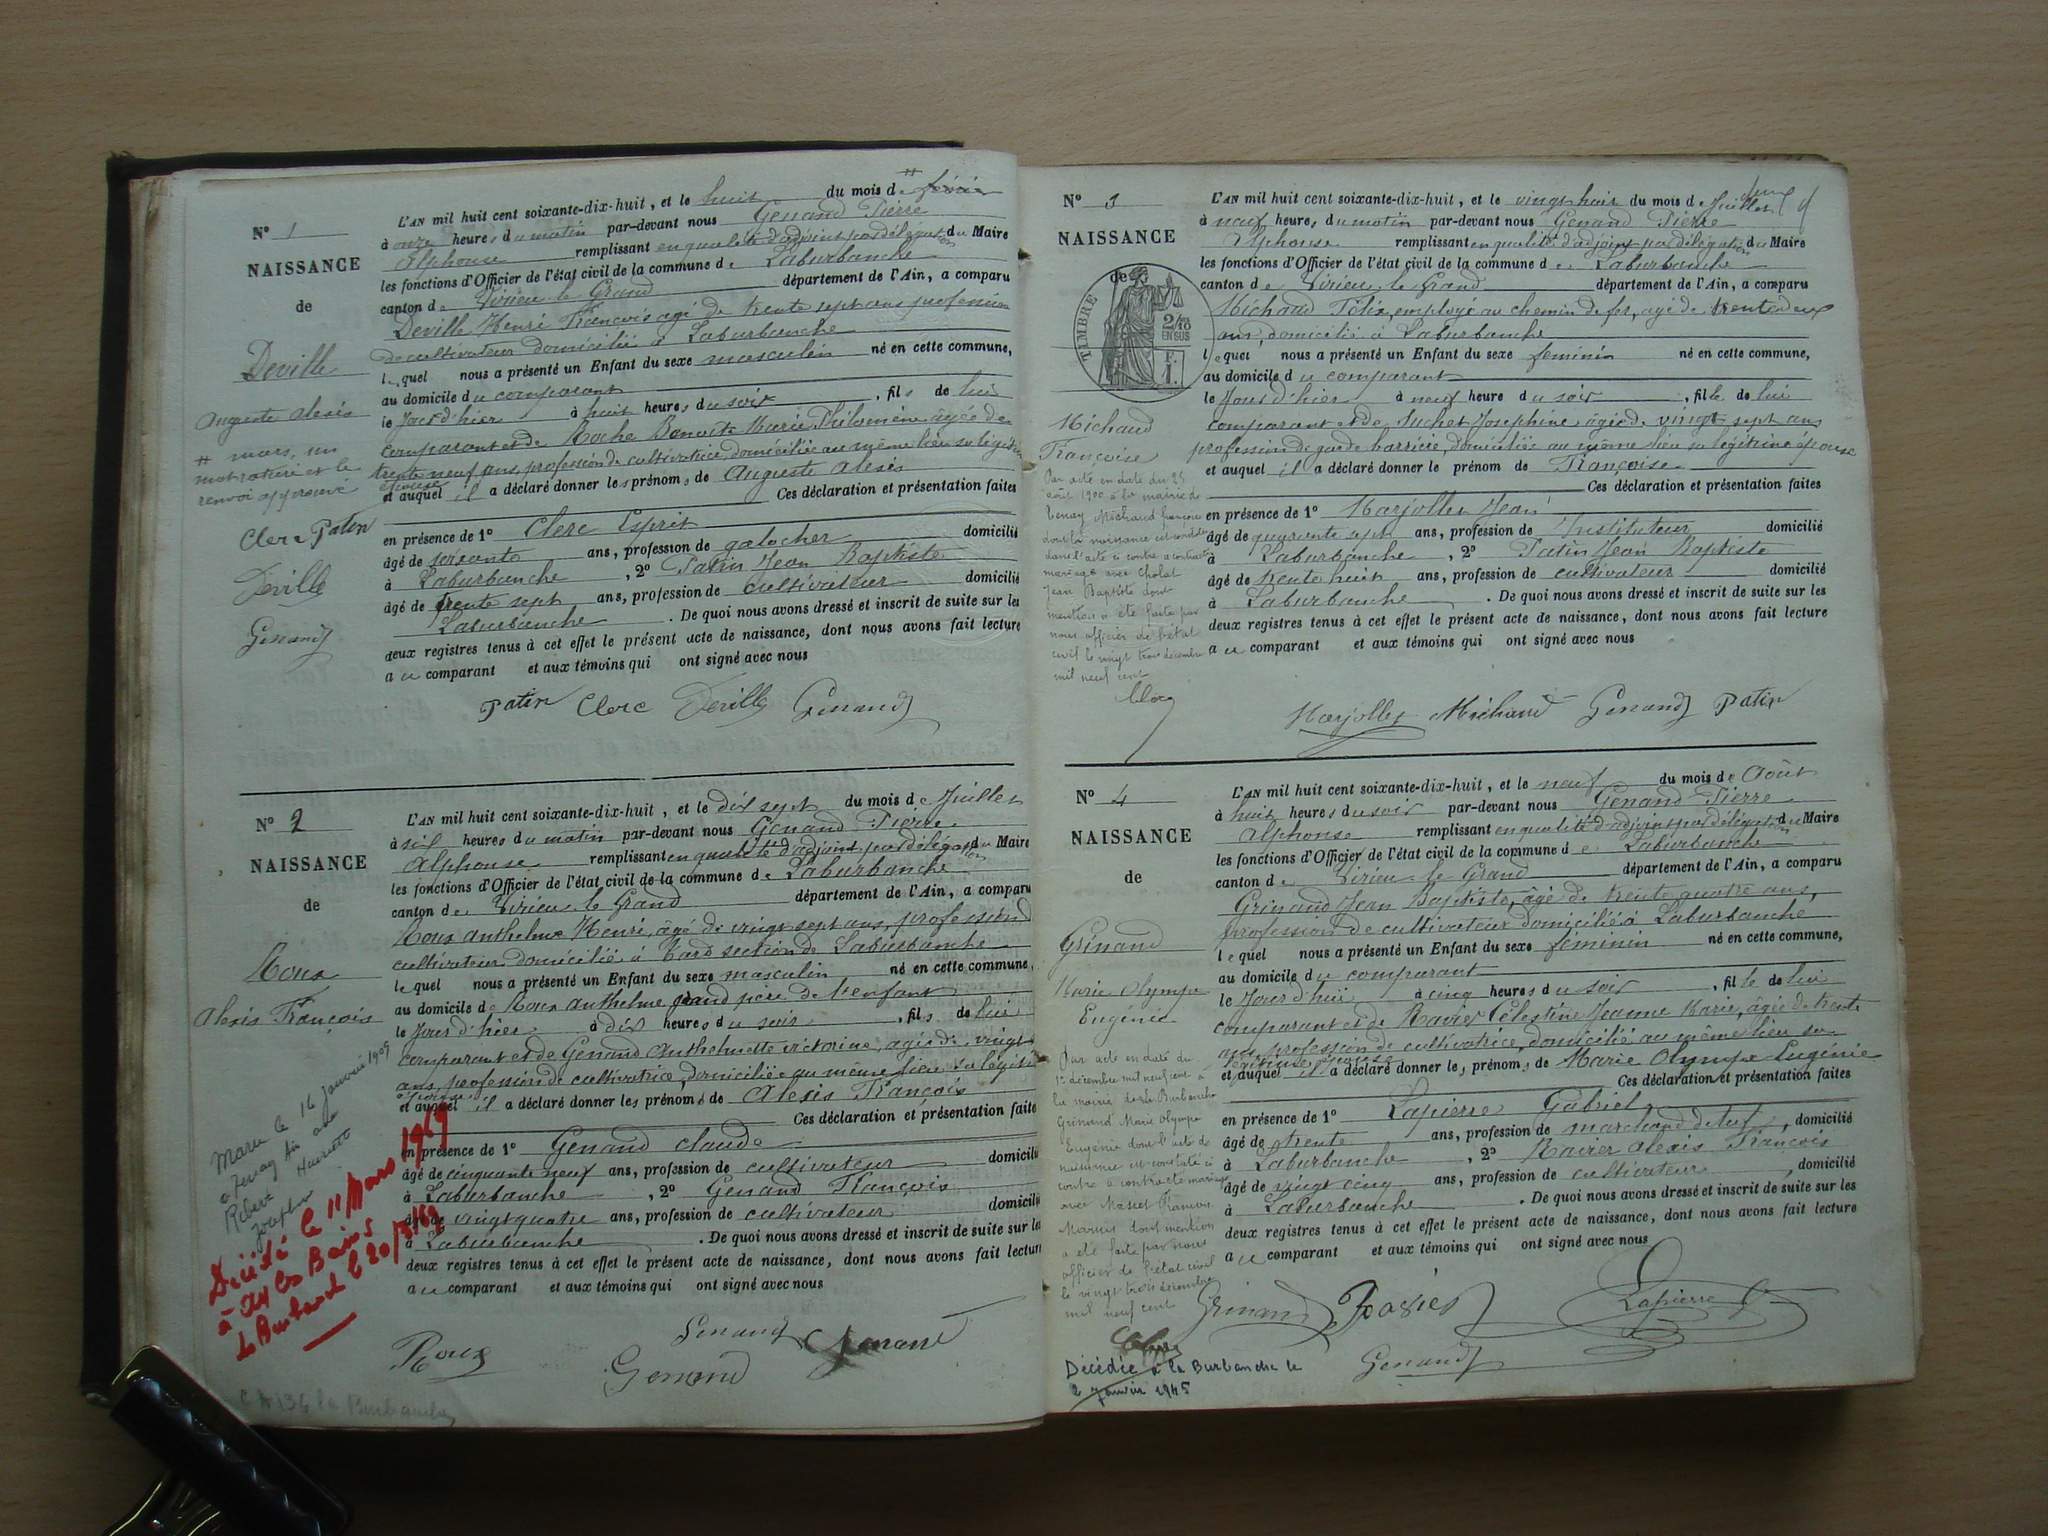 N° 1
NAISSANCE
de
Deville
Auguste Alexis
# mars, un
mot raturé et le
renvoi approuvé
Clerc Patin
Deville
Genand
L'AN mil huit cent soixante-dix-huit, et le huit du mois de # février
à onze heures du matin par-devant nous Genand Pierre
Alphonse remplissant en qualité d'adjoint par délégation du Maire
les fonctions d'Officier de l'état civil de la commune de Laburbanche
canton de Virieu le Grand département de l'Ain, a comparu
Deville Henri François agé de trente sept ans profession
de cultivateur domicilié à Laburbanche
lequel nous a présenté un Enfant du sexe masculin né en cette commune,
au domicile du comparant
le Jour d'hier à huit heures du soir, fils de lui
comparant et de Roche Benoite Marie Philomène âgée de
trente neuf ans, profession de cultivatrice domiciliée au même lieu sa légitime
épouse
et auquel il a déclaré donner les prénoms de Auguste Alexis
Ces déclaration et présentation faites
en présence de 1° Clerc Esprit
âgé de soixante ans, profession de galocher domicilié
à Laburbanche, 2° Patin Jean Baptiste
âgé de trente sept ans, profession de cultivateur domicilié
Laburbanche. De quoi nous avons dressé et inscrit de suite sur les
deux registres tenus à cet effet le présent acte de naissance, dont nous avons fait lecture
au comparant et aux témoins qui ont signé avec nous
Patin Clerc Deville Genand
N° 2
NAISSANCE
de
Roux
Alexis François
Marié le 16 Janvier 1909
à Tenay Ain avec
Robert Henriette
Joséphine
Décédé le 11 Mars 1969
à Aix les Bains
La Burbanche le 20/3/69
L'AN mil huit cent soixante-dix-huit, et le dix sept du mois de Juillet
à six heures du matin par-devant nous Genand Pierre
Alphonse remplissant en qualité d'adjoint par délégation du Maire
les fonctions d'Officier de l'état civil de la commune de Laburbanche
canton de Virieu le Grand département de l'Ain, a comparu
Roux Anthelme Henri, âgé de vingt sept ans, profession d
cultivateur domicilié à Tard section de Laburbanche
lequel nous a présenté un Enfant du sexe masculin né en cette commune,
au domicile de Roux Anthelme grand père de l'enfant
le Jour d'hier à dix heures du soir, fils de lui
comparant et de Genand Anthelmette Victorine, agée de vingt
ans, profession de cultivatrice, domiciliée au même lieu sa légitime
épouse
et auquel il a déclaré donner les prénoms de Alexis François
Ces déclaration et présentation faites
en présence de 1° Genand Claude
âgé de cinquante neuf ans, profession de cultivateur domicilié
à Laburbanche, 2° Genand François
âgé de vingt quatre ans, profession de cultivateur domicilié
à Laburbanche. De quoi nous avons dressé et inscrit de suite sur les
deux registres tenus à cet effet le présent acte de naissance, dont nous avons fait lecture
au comparant et aux témoins qui ont signé avec nous
Roux Genand Genand Genand
136 la Burbanche
N° 3
NAISSANCE
de
TIMBRE
2/10
EN SUS
F.
1.
Michaud
Françoise
Par acte en date du 25
août 1900 à la mairie de
Tenay Michaud Françoise
dont la naissance est constatée
dans l'acte ci contre a contracté
mariage avec Cholat
Jean Baptiste dont
mention a été faite par
nous officier de l'état
civil le vingt trois décembre
mil neuf cent
L'AN mil huit cent soixante-dix-huit, et le vingt huit du mois de Juillet
à neuf heures du matin par-devant nous Genand Pierre
Alphonse remplissant en qualité d'adjoint par délégation du Maire
les fonctions d'Officier de l'état civil de la commune de Laburbanche
canton de Virieu le Grand département de l'Ain, a comparu
Michaud Félix, employé au chemin de fer, agé de trente deux
ans, domicilié à Laburbanche
lequel nous a présenté un Enfant du sexe féminin né en cette commune,
au domicile du comparant
le Jour d'hier à neuf heure du soir, fille de lui
comparant et de Suchet Josephine agée de vingt sept ans
profession de garde barrière, domiciliée au même lieu sa légitime épouse
et auquel il a déclaré donner le prénom de Françoise
Ces déclaration et présentation faites
en présence de 1° Marjollet Jean
âgé de quarante sept ans, profession de Instituteur domicilié
à Laburbanche, 2° Patin Jean Baptiste
âgé de trente huit ans, profession de cultivateur domicilié
à Laburbanche. De quoi nous avons dressé et inscrit de suite sur les
deux registres tenus à cet effet le présent acte de naissance, dont nous avons fait lecture
au comparant et aux témoins qui ont signé avec nous
Marjollet Michaud Genand Patin
N° 4
NAISSANCE
de
Grinand
Marie Olympe
Eugénie
Par acte en date du
1er décembre mil neuf cent à
la mairie de la Burbanche
Grinand Marie Olympe
Eugénie dont l'acte de
naissance est constaté ci
contre a contracté mariage
avec Masset François
Marius dont mention
a été faite par nous
officier de l'état civil
le vingt trois décembre
mil neuf cent
Décédée à la Burbanche le
2 janvier 1945
L'AN mil huit cent soixante-dix-huit, et le neuf du mois de Août
à huit heures du soir par-devant nous Genand Pierre
Alphonse remplissant en qualité d'adjoint par délégation du Maire
les fonctions d'Officier de l'état civil de la commune de Laburbanche
canton de Virieu le Grand département de l'Ain, a comparu
Grinand Jean Baptiste, âgé de trente quatre ans,
profession de cultivateur domicilié à Laburbanche
lequel nous a présenté un Enfant du sexe féminin né en cette commune,
au domicile du comparant
le Jour d'hui à cinq heures du soir, fille de lui
comparant et de Ravier Célestine Jeanne Marie, âgée de trente
ans, profession de cultivatrice, domiciliée au même lieu sa
légitime épouse
et auquel il a déclaré donner les prénoms de Marie Olympe Eugénie
Ces déclaration et présentation faites
en présence de 1° Lapierre Gabriel
âgé de trente ans, profession de marchand de tuf, domicilié
à Laburbanche, 2° Ravier Alexis François
âgé de vingt cinq ans, profession de cultivateur, domicilié
à Laburbanche. De quoi nous avons dressé et inscrit de suite sur les
deux registres tenus à cet effet le présent acte de naissance, dont nous avons fait lecture
au comparant et aux témoins qui ont signé avec nous
Grinand Ravier Lapierre
Genand